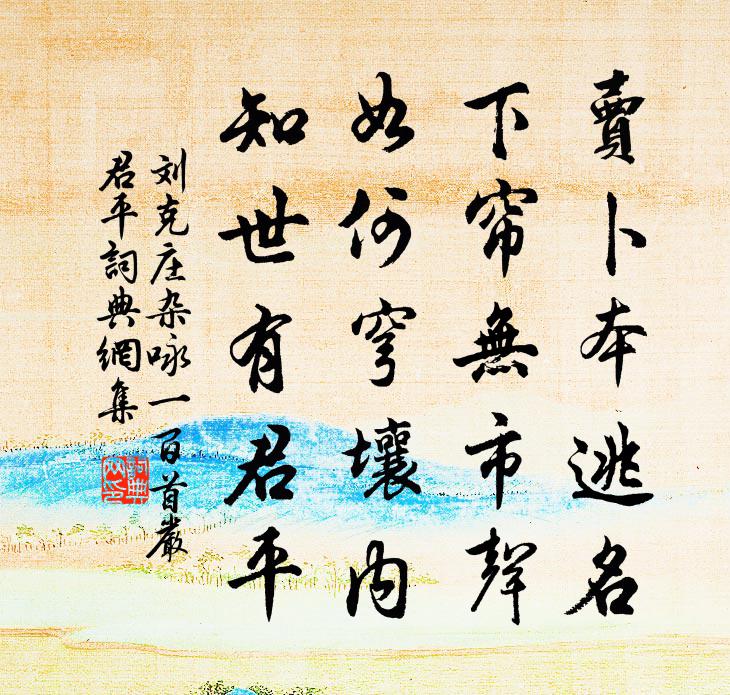 賣卜本逃名
下帘無市聲
如何穹壤内
知世有君平
刘克庄杂咏一百首嚴
君平詞典網集